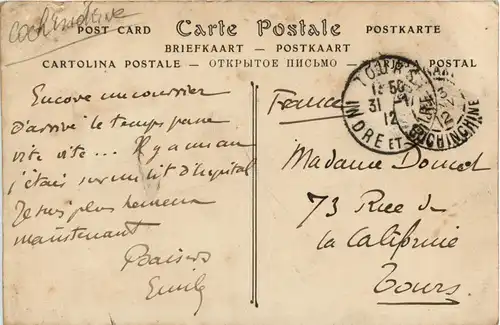 Cochinchine
POST CARD Carte Postale POSTKARTE
BRIEFKAART — POSTKAART
CARTOLINA POSTALE — ОТКРЫТОЕ ПИСЬМО — POSTAL
Encore un courrier
d'arrivé le temps passe
vite vite... Il y a un an
j'étais sur un lit d'hopital
Je suis plus heureux
maintenant
Baisers
Emile
TOURS
31
12
INDRE ET
COCHINCHINE
France
Madame Doucet
73 Rue de
la Californie
Tours